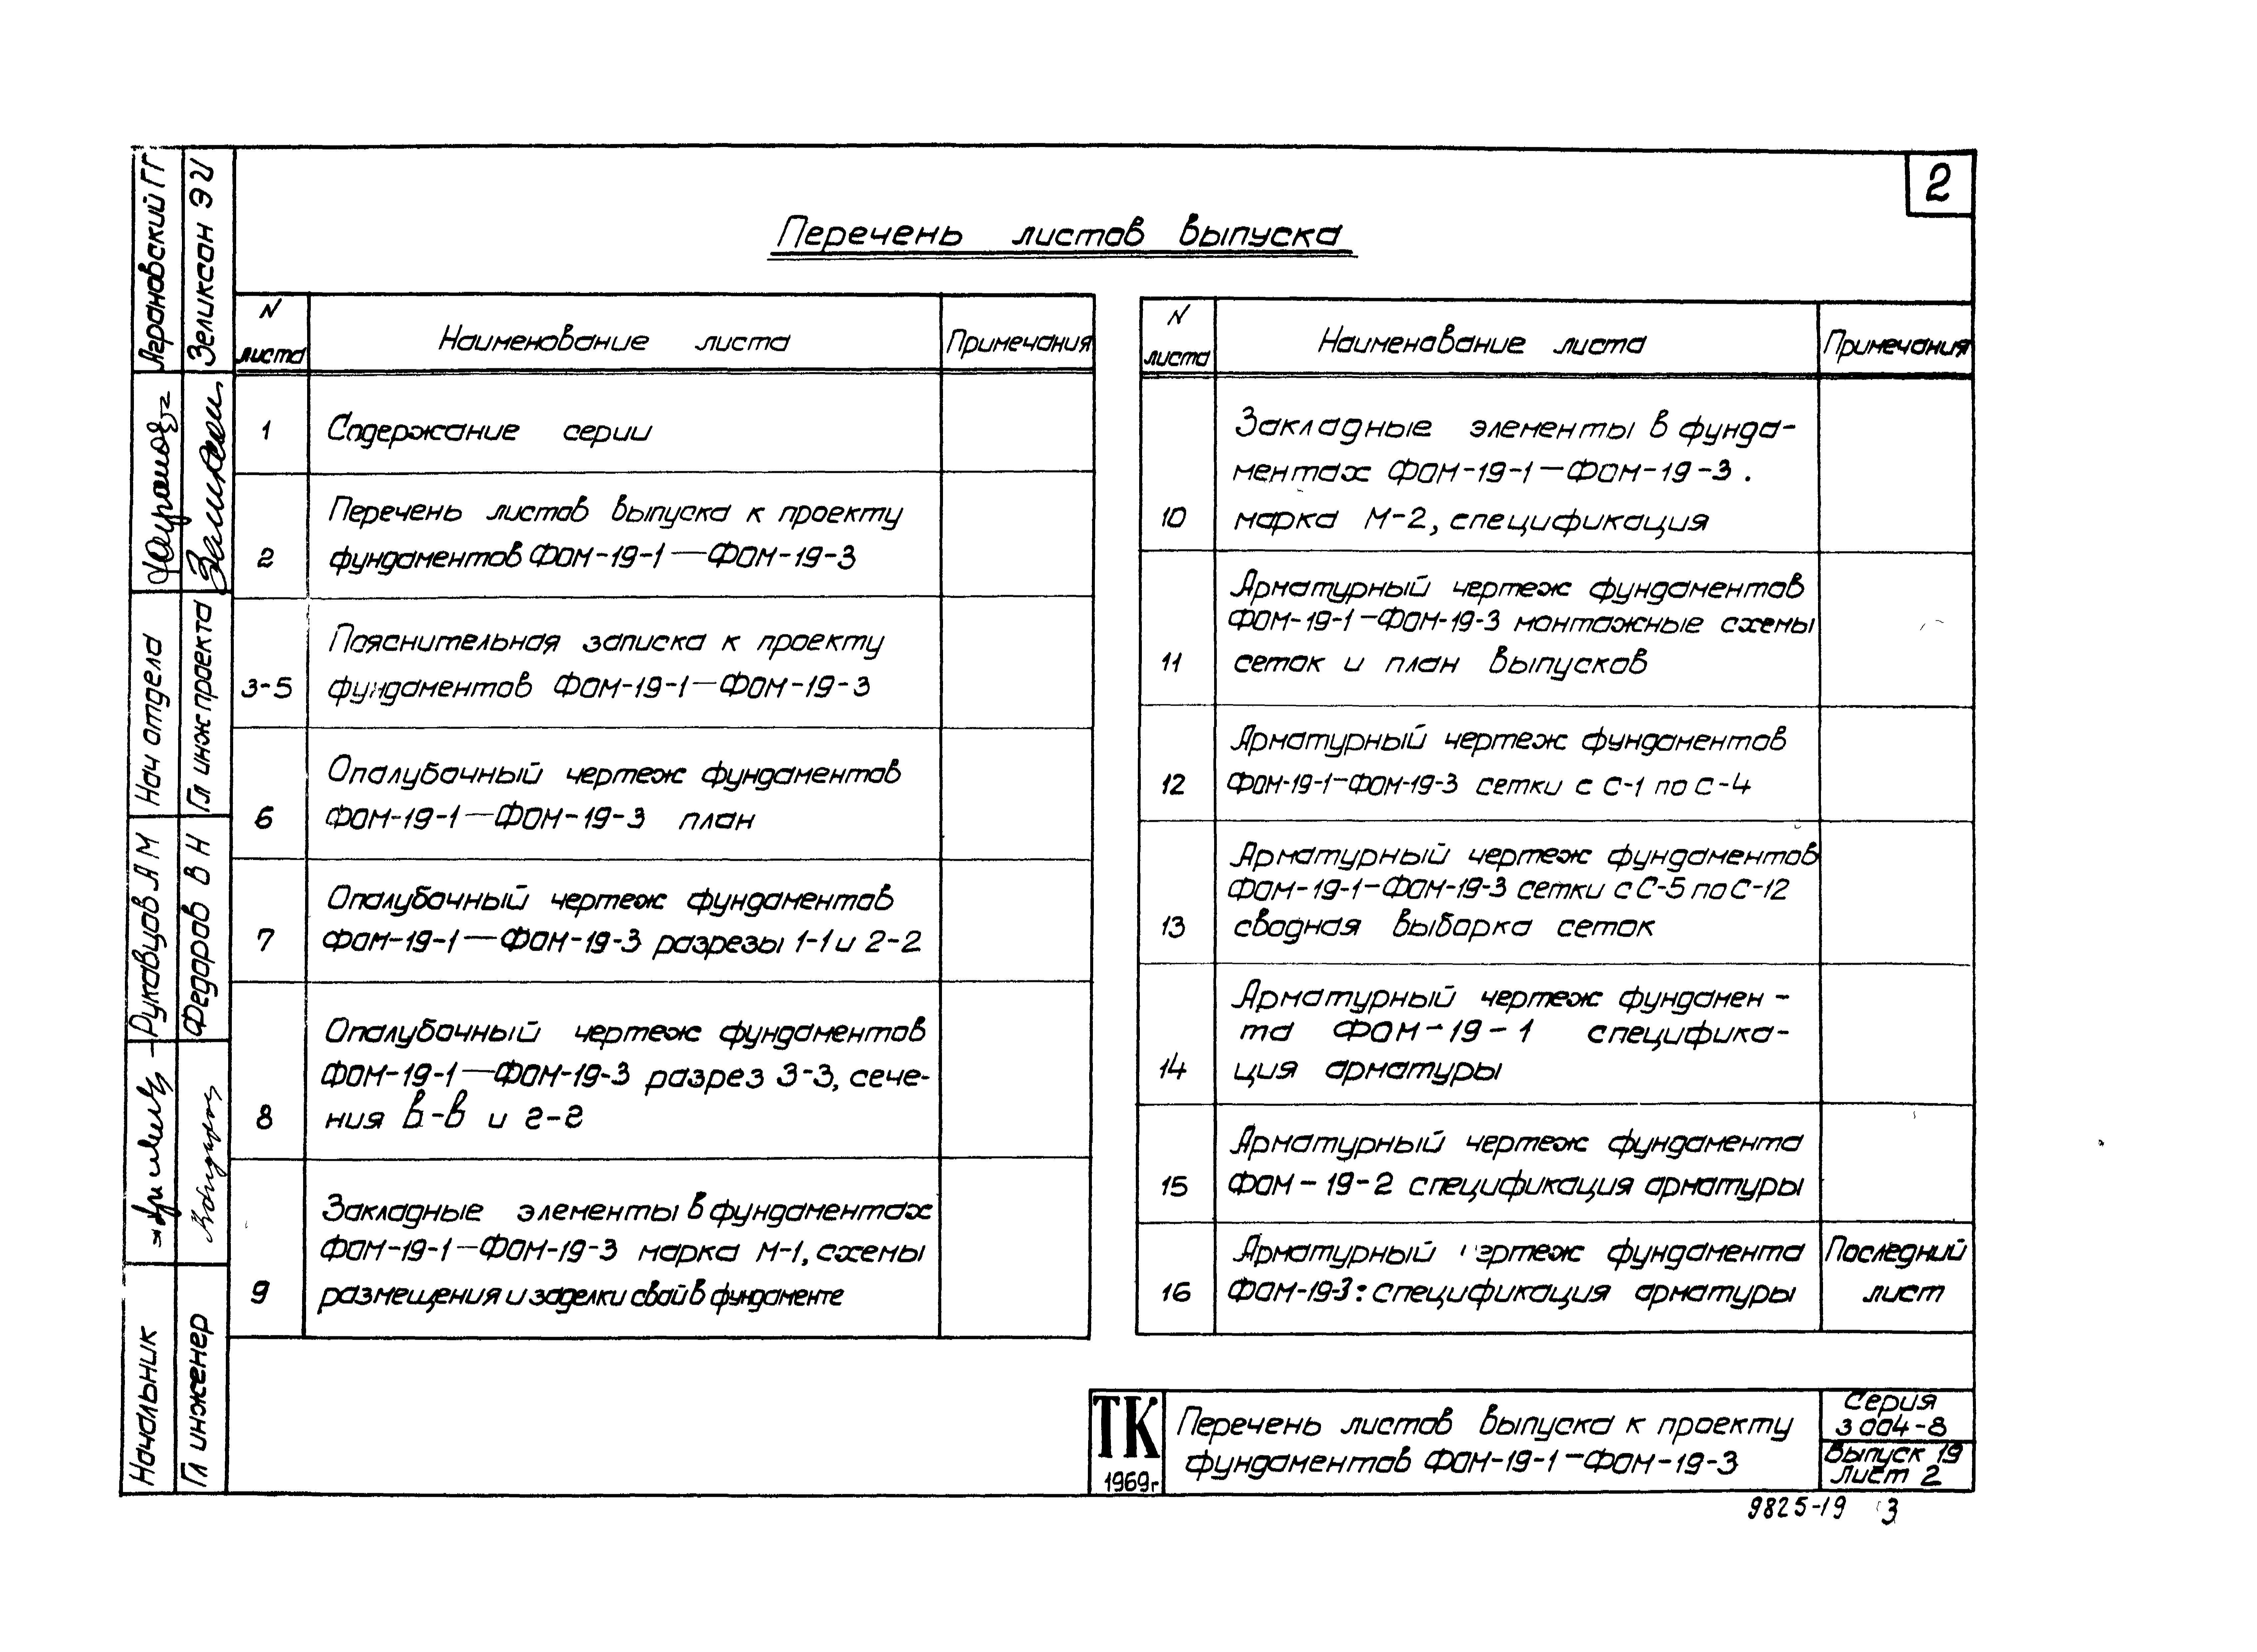 2
Перечень листов выпуска
N листа
Наименование листа
Примечания
1
Содержание серии
2
Перечень листов выпуска к проекту
фундаментов ФОМ-19-1—ФОМ-19-3
3-5
Пояснительная записка к проекту
фундаментов ФОМ-19-1—ФОМ-19-3
6
Опалубочный чертеж фундаментов
ФОМ-19-1—ФОМ-19-3 план
7
Опалубочный чертеж фундаментов
ФОМ-19-1—ФОМ-19-3 разрезы 1-1 и 2-2
8
Опалубочный чертеж фундаментов
ФОМ-19-1—ФОМ-19-3 разрез 3-3, сече-
ния в-в и г-г
9
Закладные элементы в фундаментах
ФОМ-19-1—ФОМ-19-3 марка М-1, схемы
размещения и заделки свай в фундаменте
N листа
Наименование листа
Примечания
10
Закладные элементы в фунда-
ментах ФОМ-19-1—ФОМ-19-3.
марка М-2, спецификация
11
Арматурный чертеж фундаментов
ФОМ-19-1—ФОМ-19-3 монтажные схемы
сеток и план выпусков
12
Арматурный чертеж фундаментов
ФОМ-19-1—ФОМ-19-3 сетки с С-1 по С-4
13
Арматурный чертеж фундаментов
ФОМ-19-1—ФОМ-19-3 сетки с С-5 по С-12
сводная выборка сеток
14
Арматурный чертеж фундамен-
та ФОМ-19-1 специфика-
ция арматуры
15
Арматурный чертеж фундамента
ФОМ-19-2 спецификация арматуры
16
Арматурный чертеж фундамента
ФОМ-19-3: спецификация арматуры
Последний
лист
ТК
1969г
Перечень листов выпуска к проекту
фундаментов ФОМ-19-1—ФОМ-19-3
Серия
3 004-8
Выпуск 19
Лист 2
9825-19 3
Начальник
Рукавцов А М
Нач отдела
Аграновский ГГ
Гл инженер
Федоров В Н
Гл инж проекта
Зеликсон Э И